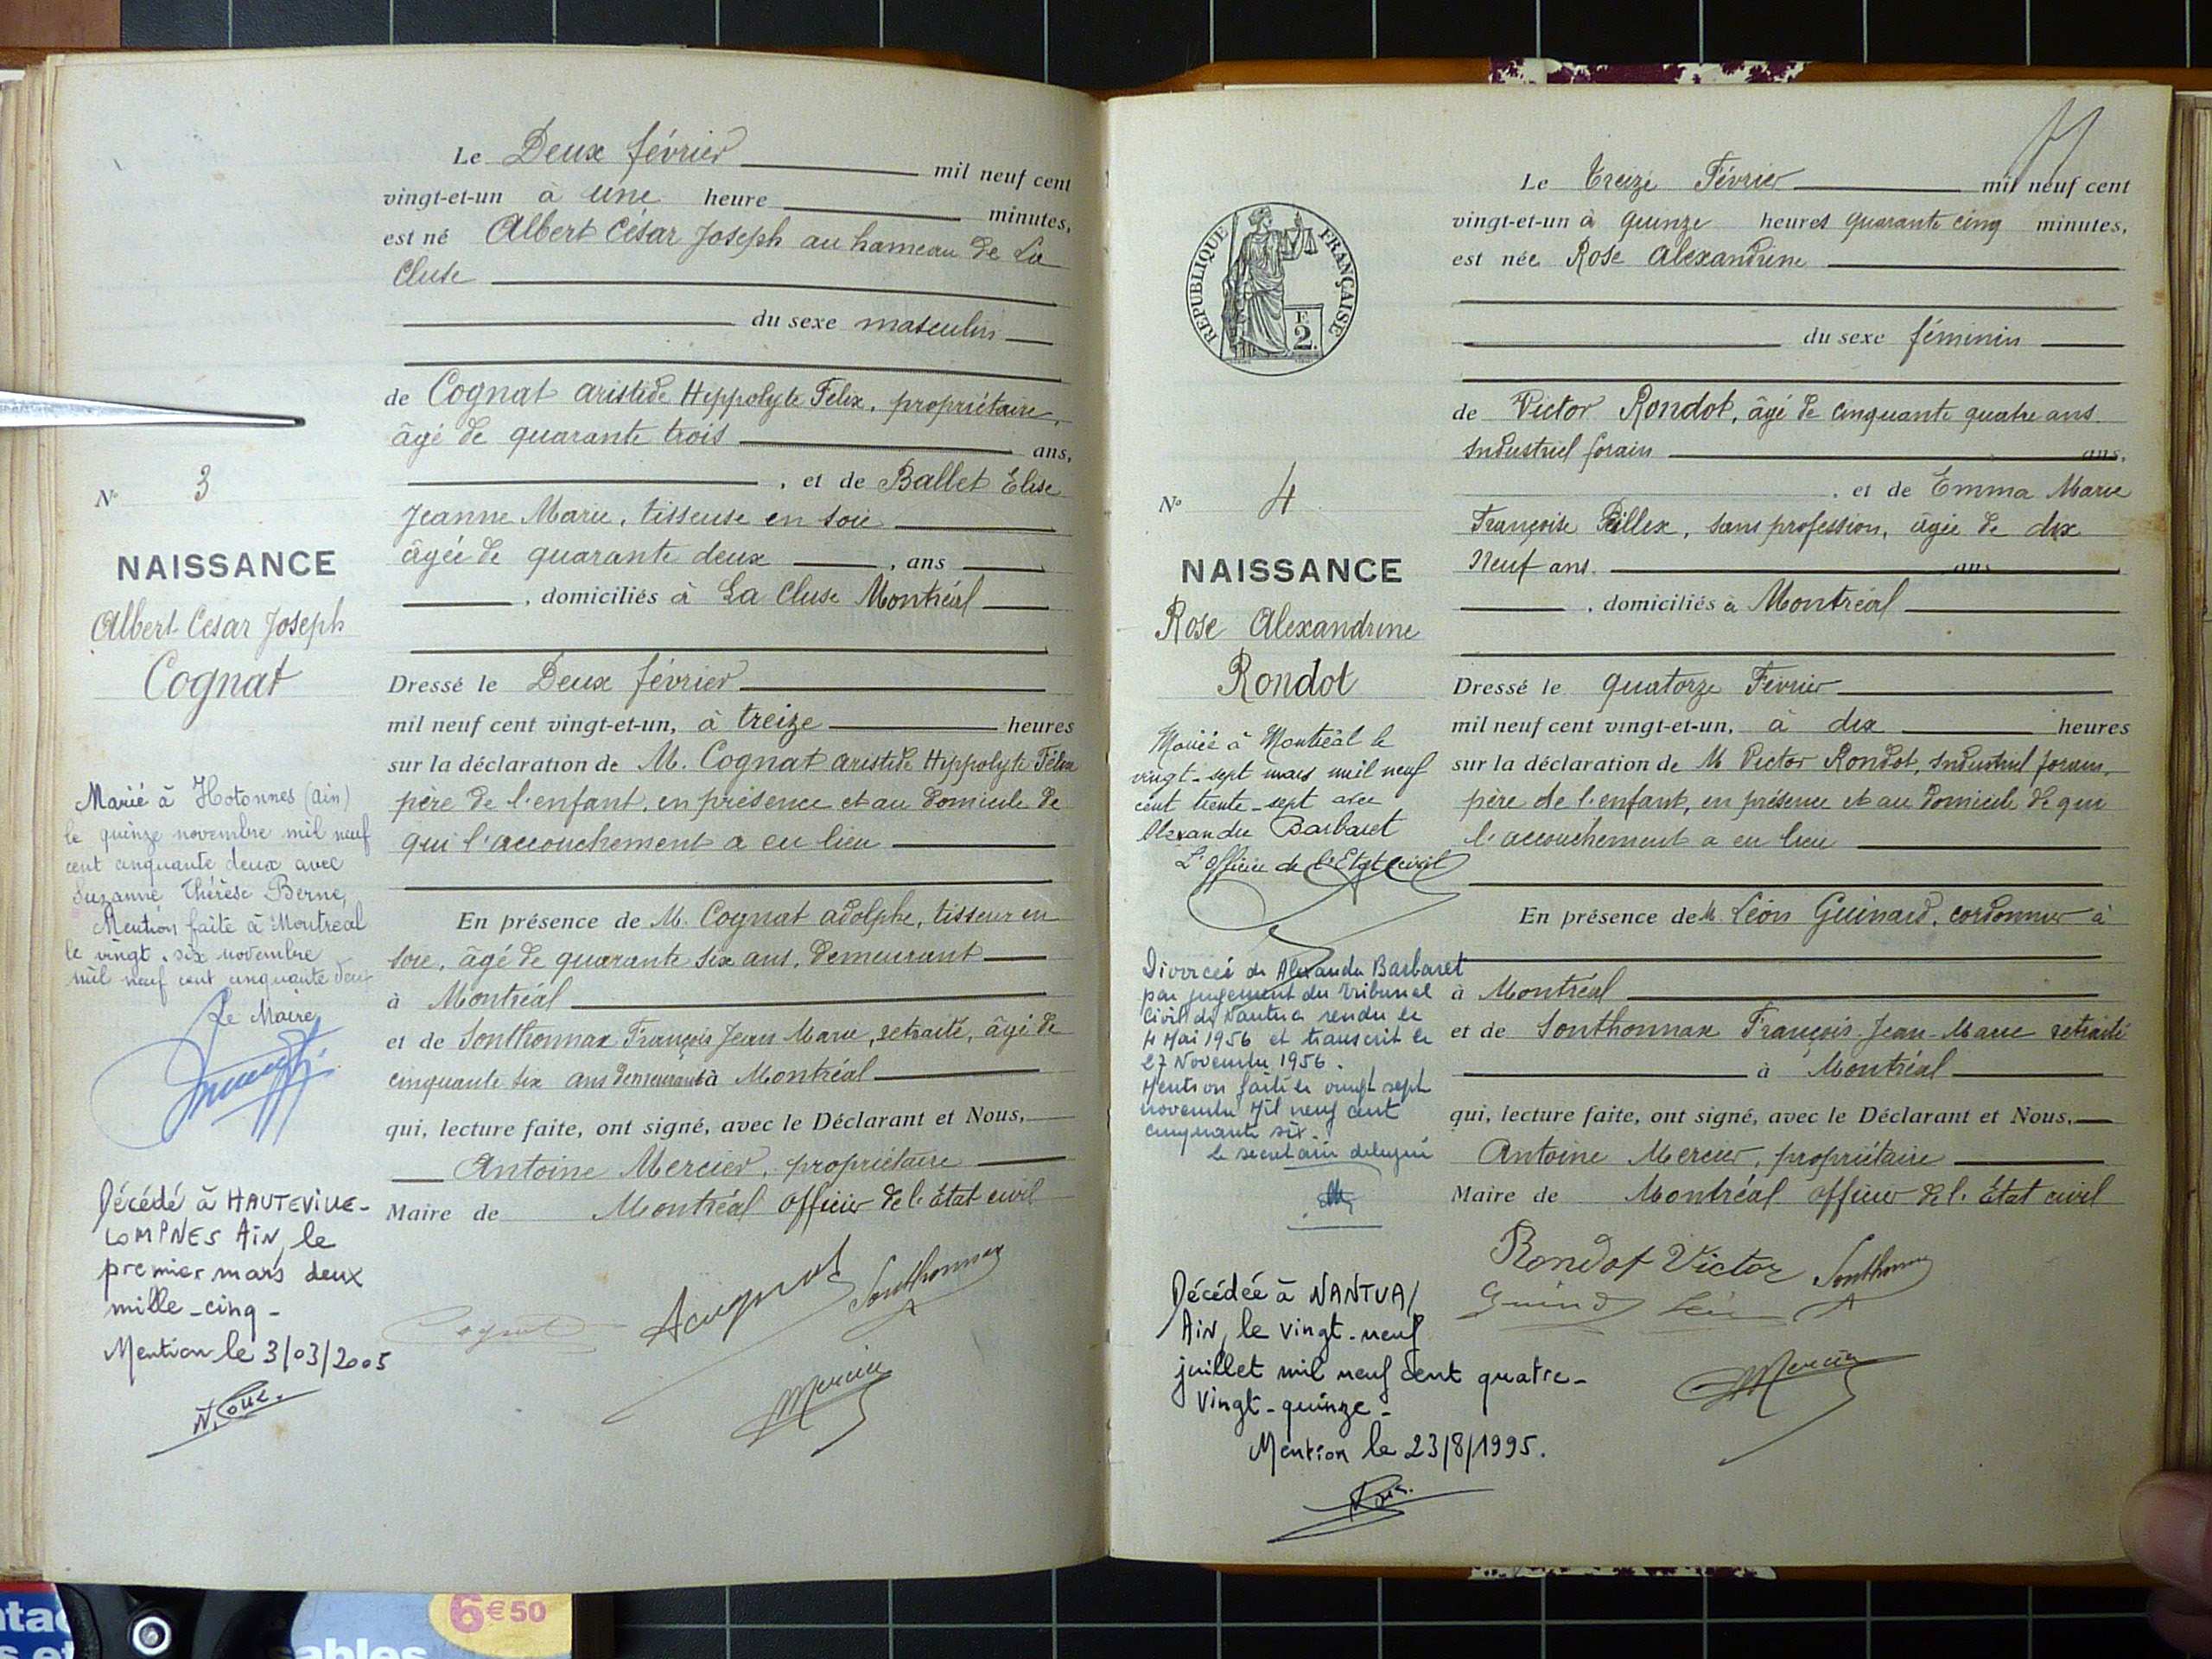 Le Deux février mil neuf cent
vingt-et-un à une heure minutes,
est né Albert César Joseph au hameau de La
Cluse
du sexe masculin
de Cognat aristide Hippolyte Félix, propriétaire,
âgé de quarante trois ans,
, et de Ballet Elise
Jeanne Marie, tisseuse en soie
âgée de quarante deux , ans
, domiciliés à La Cluse Montréal
Dressé le Deux février
mil neuf cent vingt-et-un, à treize heures
sur la déclaration de M. Cognat aristide Hippolyte Félix
père de l'enfant, en présence et au domicile de
qui l'accouchement a eu lieu
En présence de M. Cognat adolphe, tisseur en
soie, âgé de quarante six ans, demeurant
à Montréal
et de Sonthonnax François Jean Marie, retraité, âgé de
cinquante six ans demeurant à Montréal
qui, lecture faite, ont signé, avec le Déclarant et Nous,
Antoine Mercier, propriétaire
Maire de Montréal officier de l'État civil
Cognat
Sonthonnax
Mercier
N° 3
NAISSANCE
Albert César Joseph
Cognat
Marié à Hotonnes (ain)
le quinze novembre mil neuf
cent cinquante deux avec
Suzanne Thérèse Berne,
Mention faite à Montréal
le vingt-six novembre
mil neuf cent cinquante deux
Le Maire
Décédé à HAUTEVILLE-
LOMPNES AIN, le
premier mars deux
mille-cinq-
Mention le 3/03/2005
Le Treize Février mil neuf cent
vingt-et-un à quinze heures quarante cinq minutes,
est née Rose Alexandrine
du sexe féminin
de Victor Rondot, âgé de cinquante quatre ans.
Industriel forain ans,
, et de Emma Marie
Françoise Pillex, sans profession, âgée de dix
Neuf ans. ans
, domiciliés à Montréal
Dressé le quatorze Février
mil neuf cent vingt-et-un, à dix heures
sur la déclaration de M Victor Rondot, Industriel forain,
père de l'enfant, en présence et au domicile de qui
l'accouchement a eu lieu
En présence de M. Léon Guinard, cordonnier à
à Montréal
et de Sonthonnax François Jean-Marie retraité
à Montréal
qui, lecture faite, ont signé, avec le Déclarant et Nous,
Antoine Mercier, propriétaire
Maire de Montréal officier de l'État civil
Rondot Victor Sonthonnax
Mercier
REPUBLIQUE FRANÇAISE
F
2.
N° 4
NAISSANCE
Rose Alexandrine
Rondot
Mariée à Montréal le
vingt-sept mars mil neuf
cent trente-sept avec
Alexandre Barbaret
L'officier de l'Etat civil
Divorcée de Alexandre Barbaret
par jugement du Tribunal
Civil de Nantua rendu le
4 Mai 1956 et transcrit le
27 Novembre 1956.
Mention faite le vingt sept
novembre Mil neuf cent
cinquante six.
le secrétaire délégué
Décédée à NANTUA/
AIN, le vingt-neuf
juillet mil neuf cent quatre-
vingt-quinze-
Mention le 23/8/1995.
6€50
ables